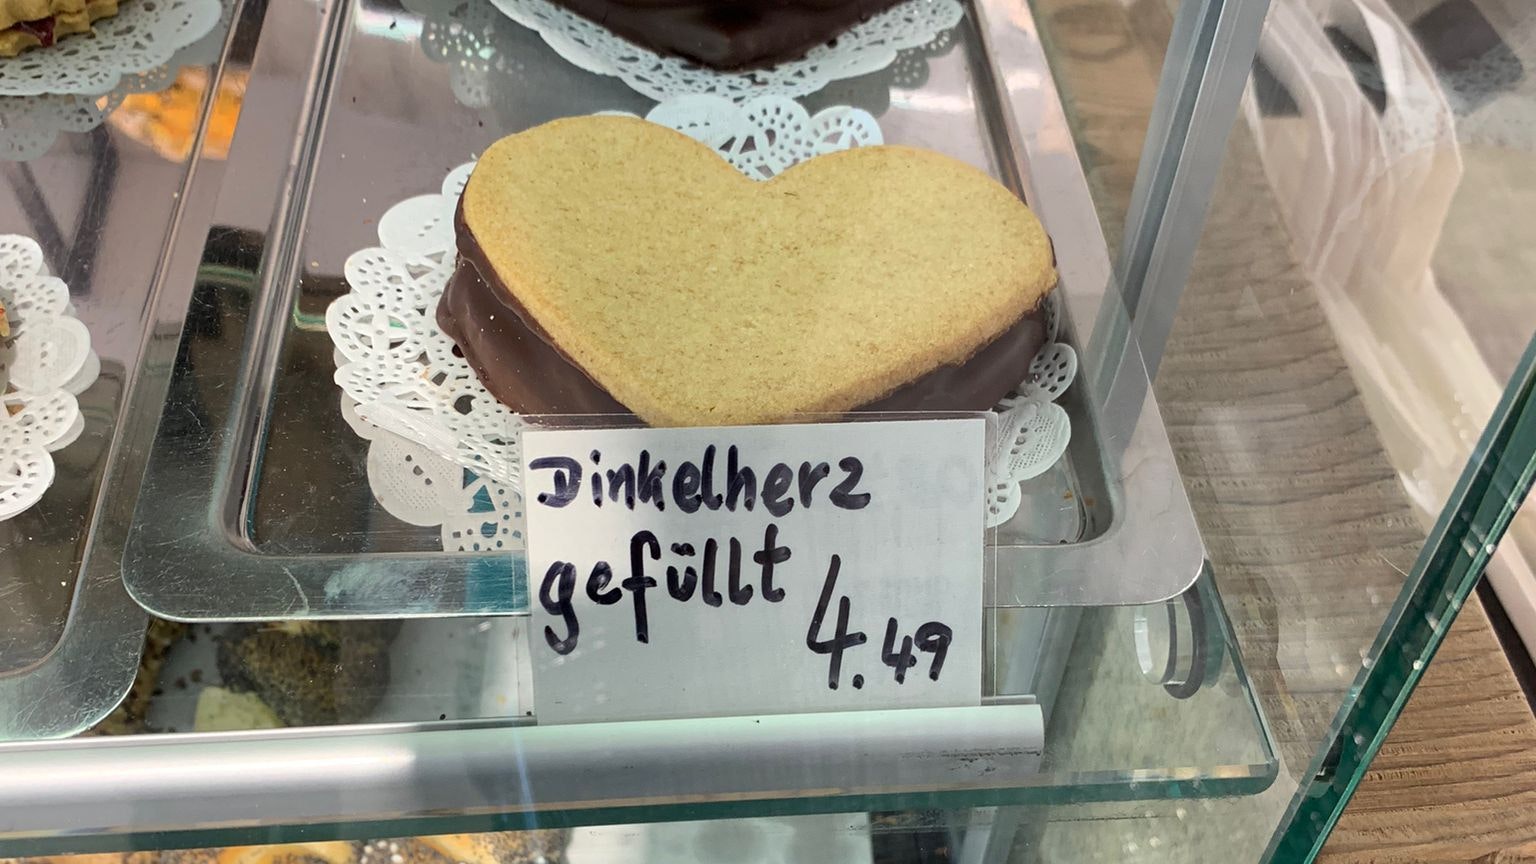 Dinkelherz
gefüllt
4.49